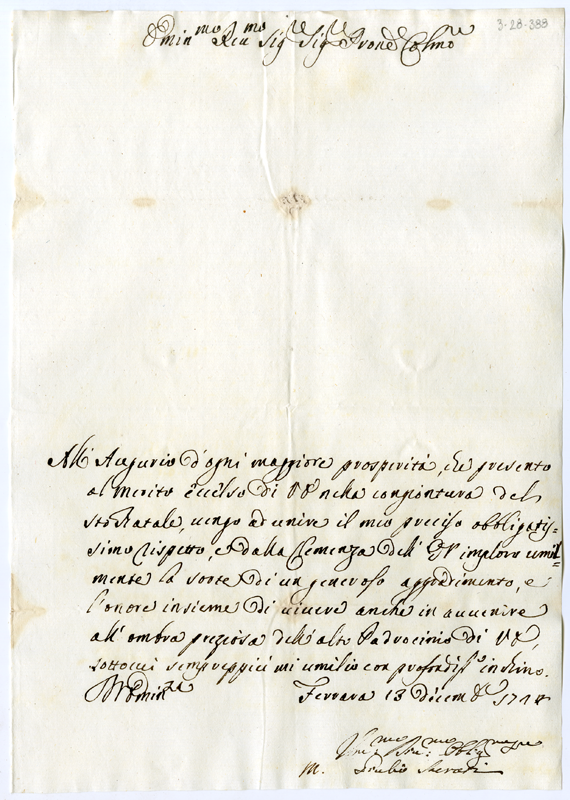 3-28-388
Emin^mo Rev^mo Sig^re Sig^re Prone Colmo
All' Augurio d'ogni maggiore prosperità, che presento
al merito eccelso di VE nella congiontura del
sto Natale, vengo ad unire il mio preciso obbligatis=
simo rispetto, e dalla Clemenza dell' EV imploro umil=
mente la sorte di un generoso aggradimento, e
l'onore insieme di vivere anche in avvenire
all' ombra preziosa dell' alto Padrocinio di VE,
sotto cui sempreppiù mi umilio con profondis^o inchino.
Ferrara 13 Dicem^e
M.